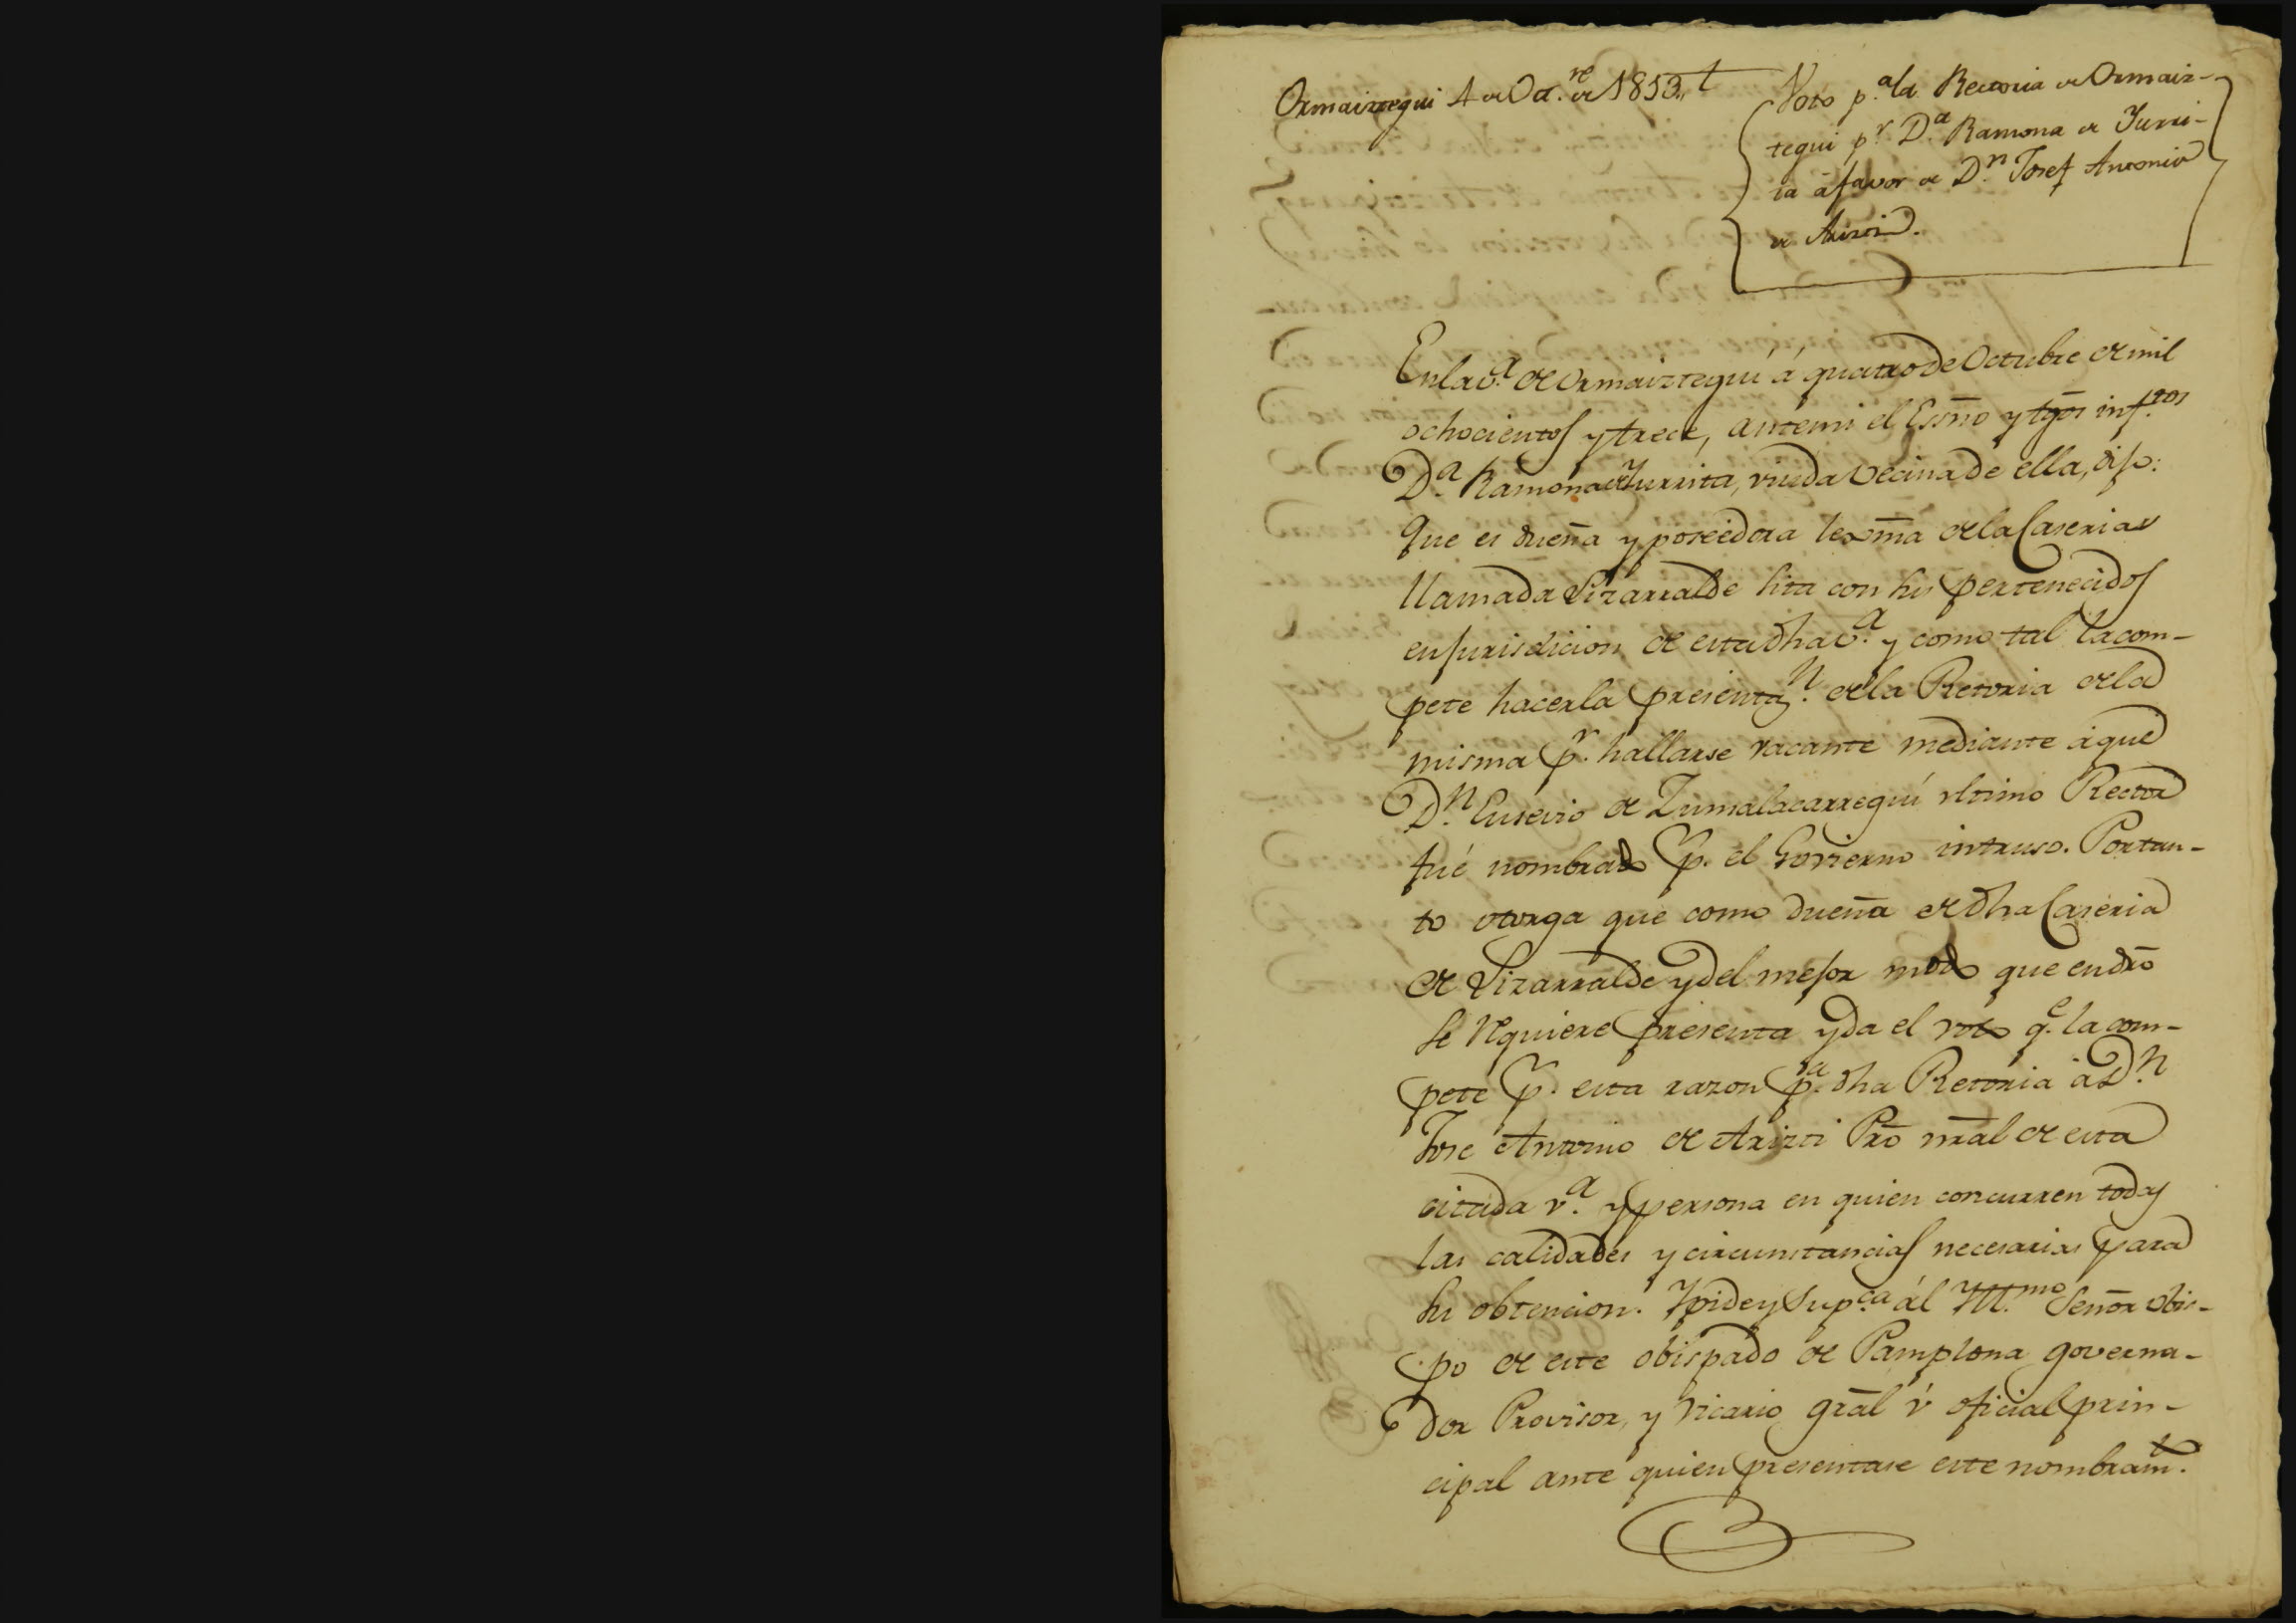 Ormaiztegui 4 de Oct.re de 1813.
Voto p.a la Rectoria de Ormaiz-
tegui p.r D.a Ramona de Yurri-
ta á favor de D.n Josef Antonio
de Arizti.
En la v.a de Ormaiztegui á quatro de Octubre de mil
ochocientos y trece, ante mi el Essño y tg̃os inf.tos
D.a Ramona de Yurrita, viuda vecina de ella, dijo:
Que es dueña y poseedora lexm̃a de la Caseria
llamada Lizarralde sita con sus pertenecidos
en jurisdicion de esta dha v.a y como tal la com-
pete hacer la presentaz.n de la Retoria de la
misma p.r hallarse vacante mediante á que
D.n Eusevio de Zumalacarregui ultimo Rector
fué nombrado p.r el Govierno intruso. Por tan-
to otorga que como dueña de dha Caseria
de Lizarralde y del mejor modo que en dr̃o
se requiere presenta y da el voto q.e la com-
pete p.r esta razon p.a dha Retoria á D.n
Jose Antonio de Arizti Pr̃o nr̃al de esta
citada v.a y persona en quien concurren todas
las calidades y circunstancias necesarias para
su obtencion. Y pide y sup.ca ál Yll.mo Señor obis-
po de este obispado de Pamplona governa-
dor Provisor, y Vicario gr̃al ú oficial prin-
cipal ante quien presentase este nombram.to